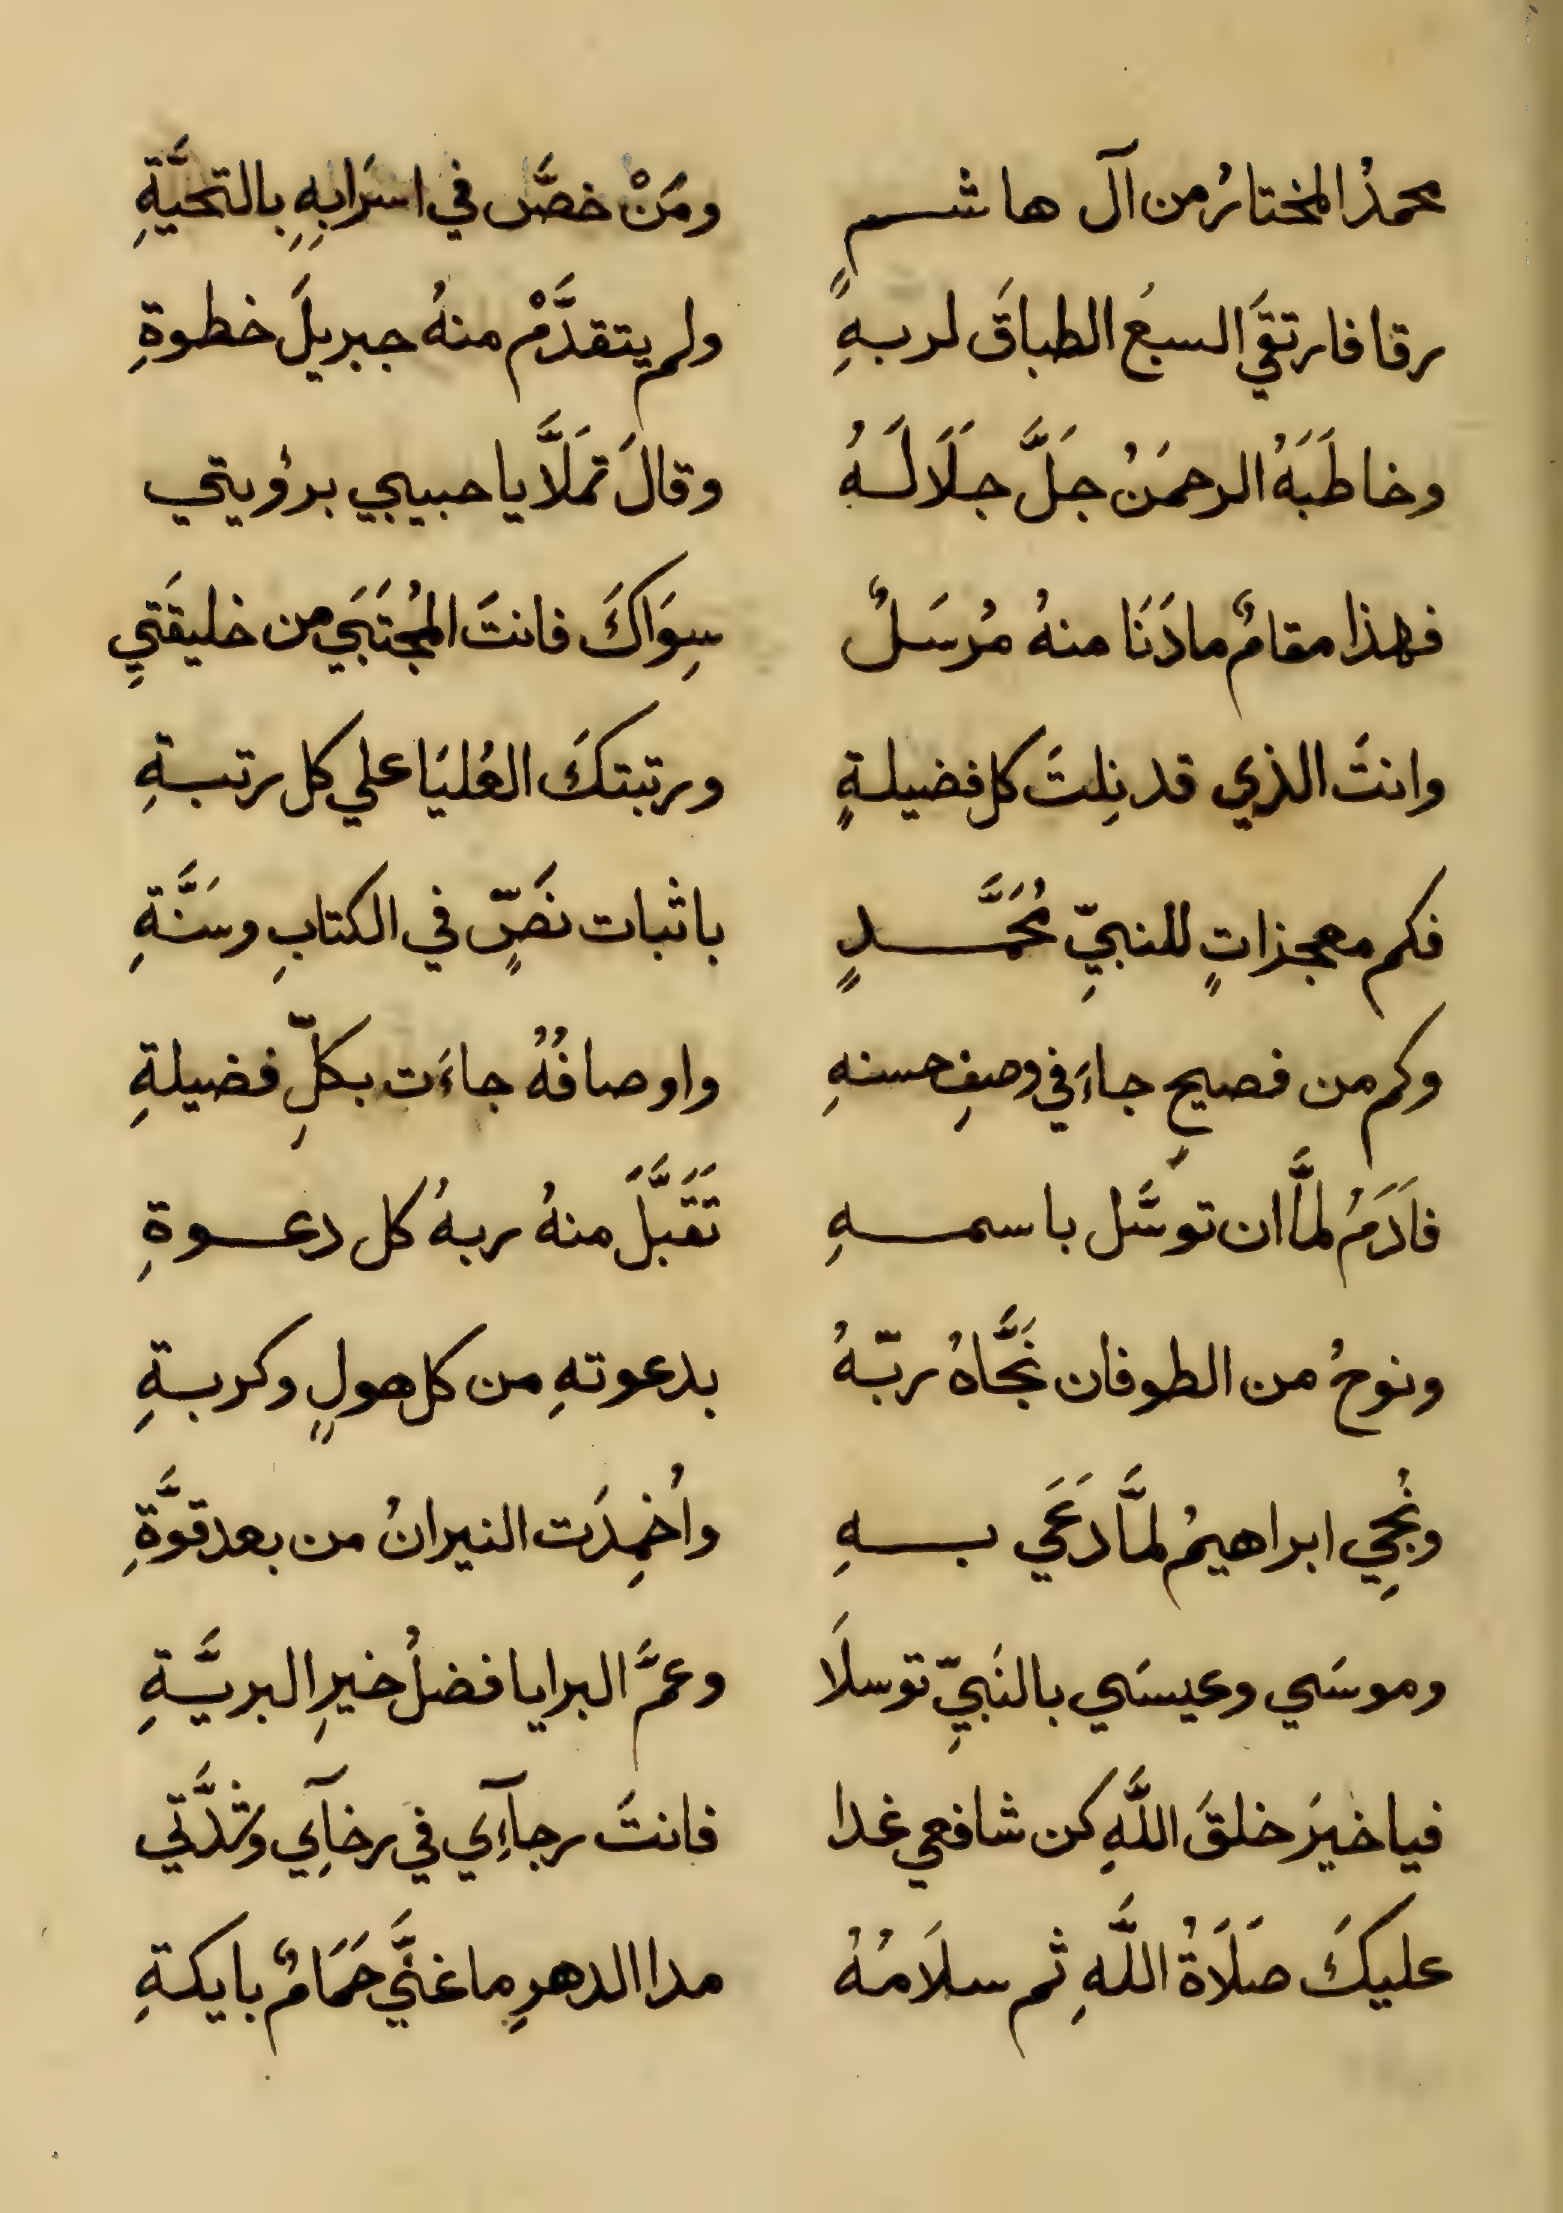 محمدُ المختارُ من آل هاشمٍ ومَنْ خصَّ في اسرَابِهِ بالتحيَّةِ
رقا فارتقَي السبعَ الطباقَ لربهِ ولم يتقدَّمْ منهُ جبريلَ خطوةِ
وخاطَبَهُ الرحمَنُ جَلَّ جَلَالَهُ وقالَ تمَلَّا يا حبيبي برؤيتي
فهذا مقامٌ مادَنَا منهُ مُرسَلٌ سِوَاكَ فانتَ المُجتَبَي من خليقَتيِ
وانتَ الذي قد نِلتَ كل فضيلةٍ ورتبتكَ العُليَا علي كل رتبةِ
فكم معجزاتٍ للنبيِّ مُحَمَّدٍ باثبات نَصٍّ في الكتابِ وسَنَّةِ
وكم من فصيحِ جاءَ في وصفِ حسنهِ واوصافُهُ جاءَت بكلِّ فضيلةِ
فاَدَمُ لمَّا ان توسَّل باسمهِ تَقَبَّلَ منهُ ربهُ كل دعوةِ
ونوحُ من الطوفان نَجَّاهُ ربّهُ بدعوتهِ من كل هولٍ وكربةِ
ونُجِي ابراهيمُ لمَّا دَعَي بهِ واُخمِدَت النيرانُ من بعد قوَّةِ
وموسَي وعيسَي بالنَبيِّ توسلَا وعمَّ البرايا فضلُ خيرِ البريَّةِ
فيا خيرَ خلقَ اللَّهِ كن شافعي غدا فانتَ رجآءِي في رخآءِي وشدَّتي
عليكَ صَلَاةُ اللَّهِ ثم سلَامُهُ مدا الدهرِ ما غنَّي حَمَامٌ بايكةِ